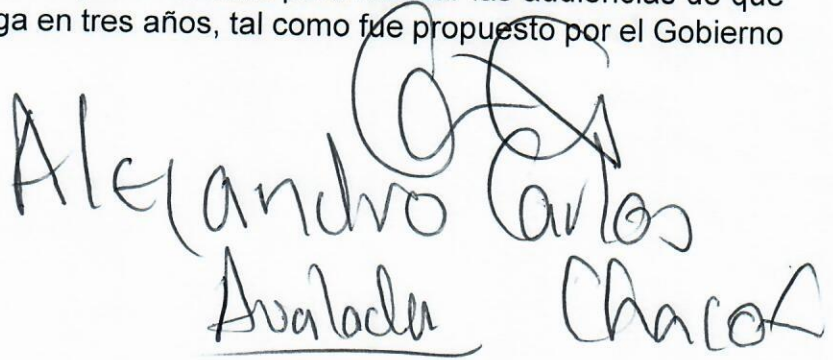 ga en tres años, tal como fue propuesto por el Gobierno
Alejandro Carlos
Chacón